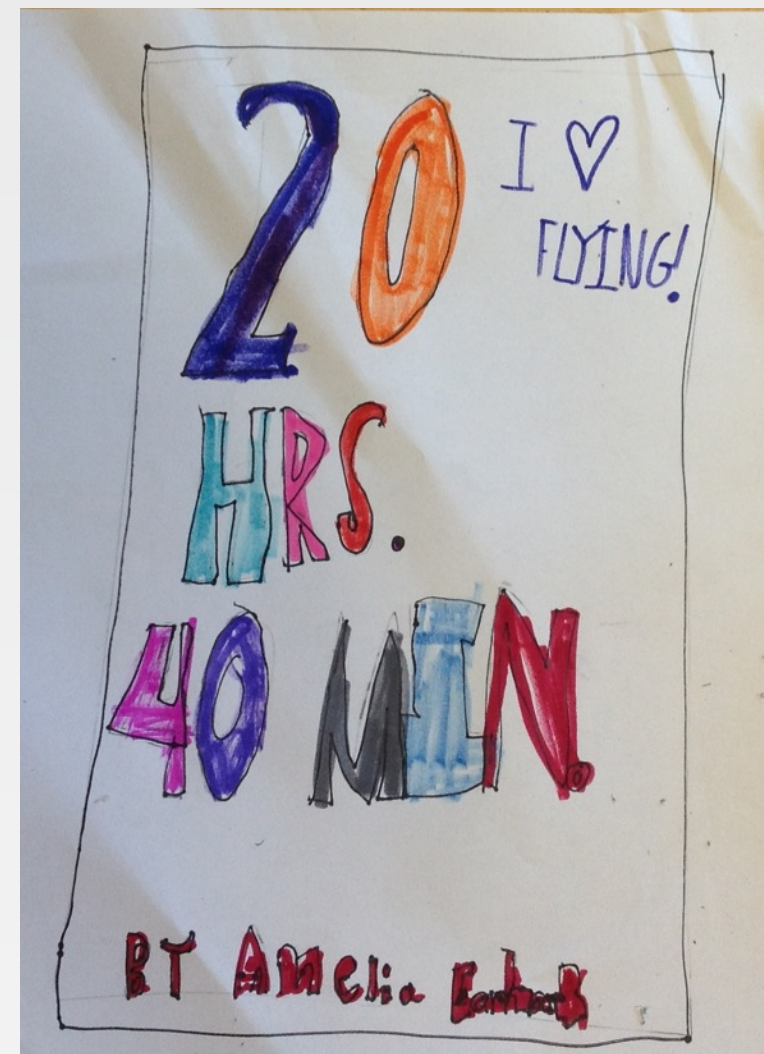 20
I ♡
FLYING!
HRS.
40 MIN.
BY Amelia Earhart